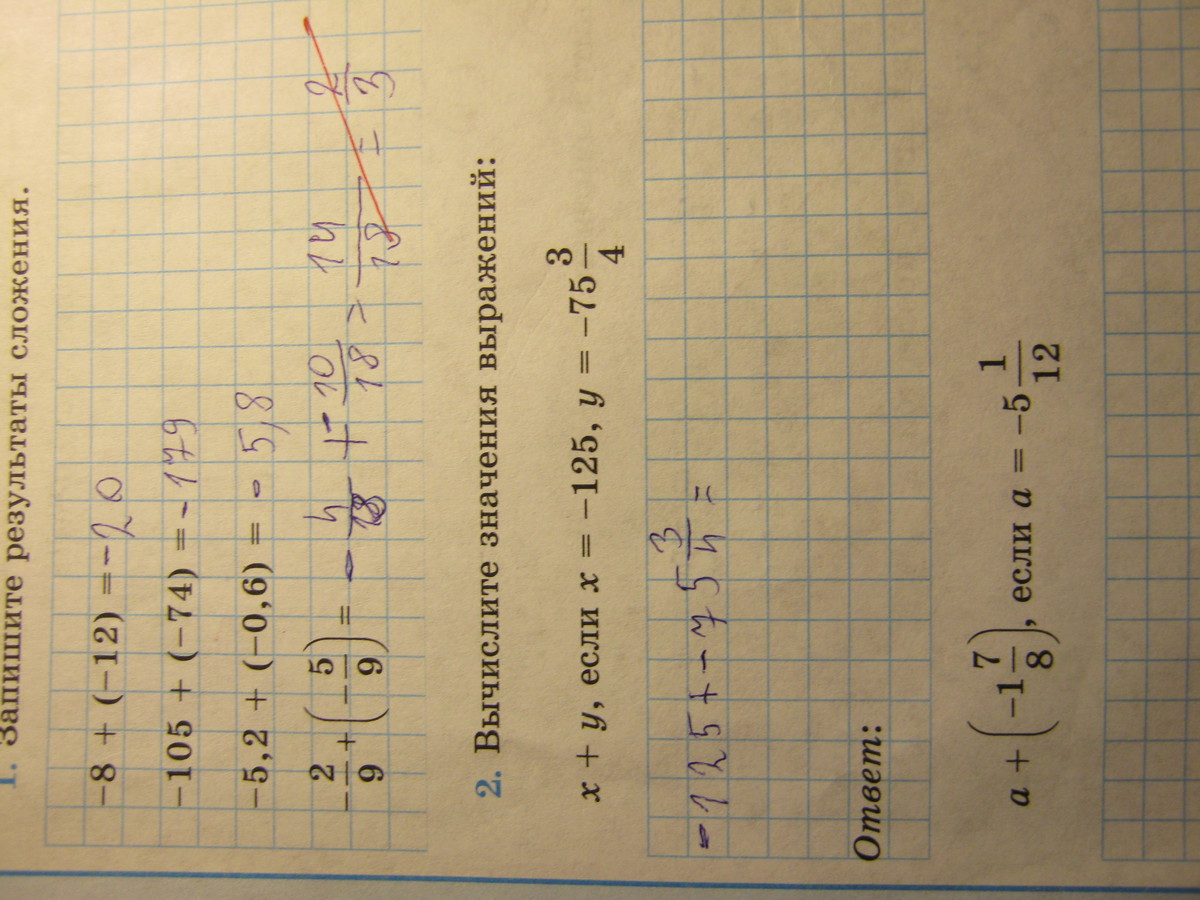 1. Запишите результаты сложения.
-8 + (-12) = -20
-105 + (-74) = -179
-5,2 + (-0,6) = -5,8
-2/9 + (-5/9) = -4/18 + -10/18 = 14/18 = 2/3
2. Вычислите значения выражений:
x + y, если x = -125, y = -75 3/4
-125 + -75 3/4 =
Ответ:
a + (-1 7/8), если a = -5 1/12